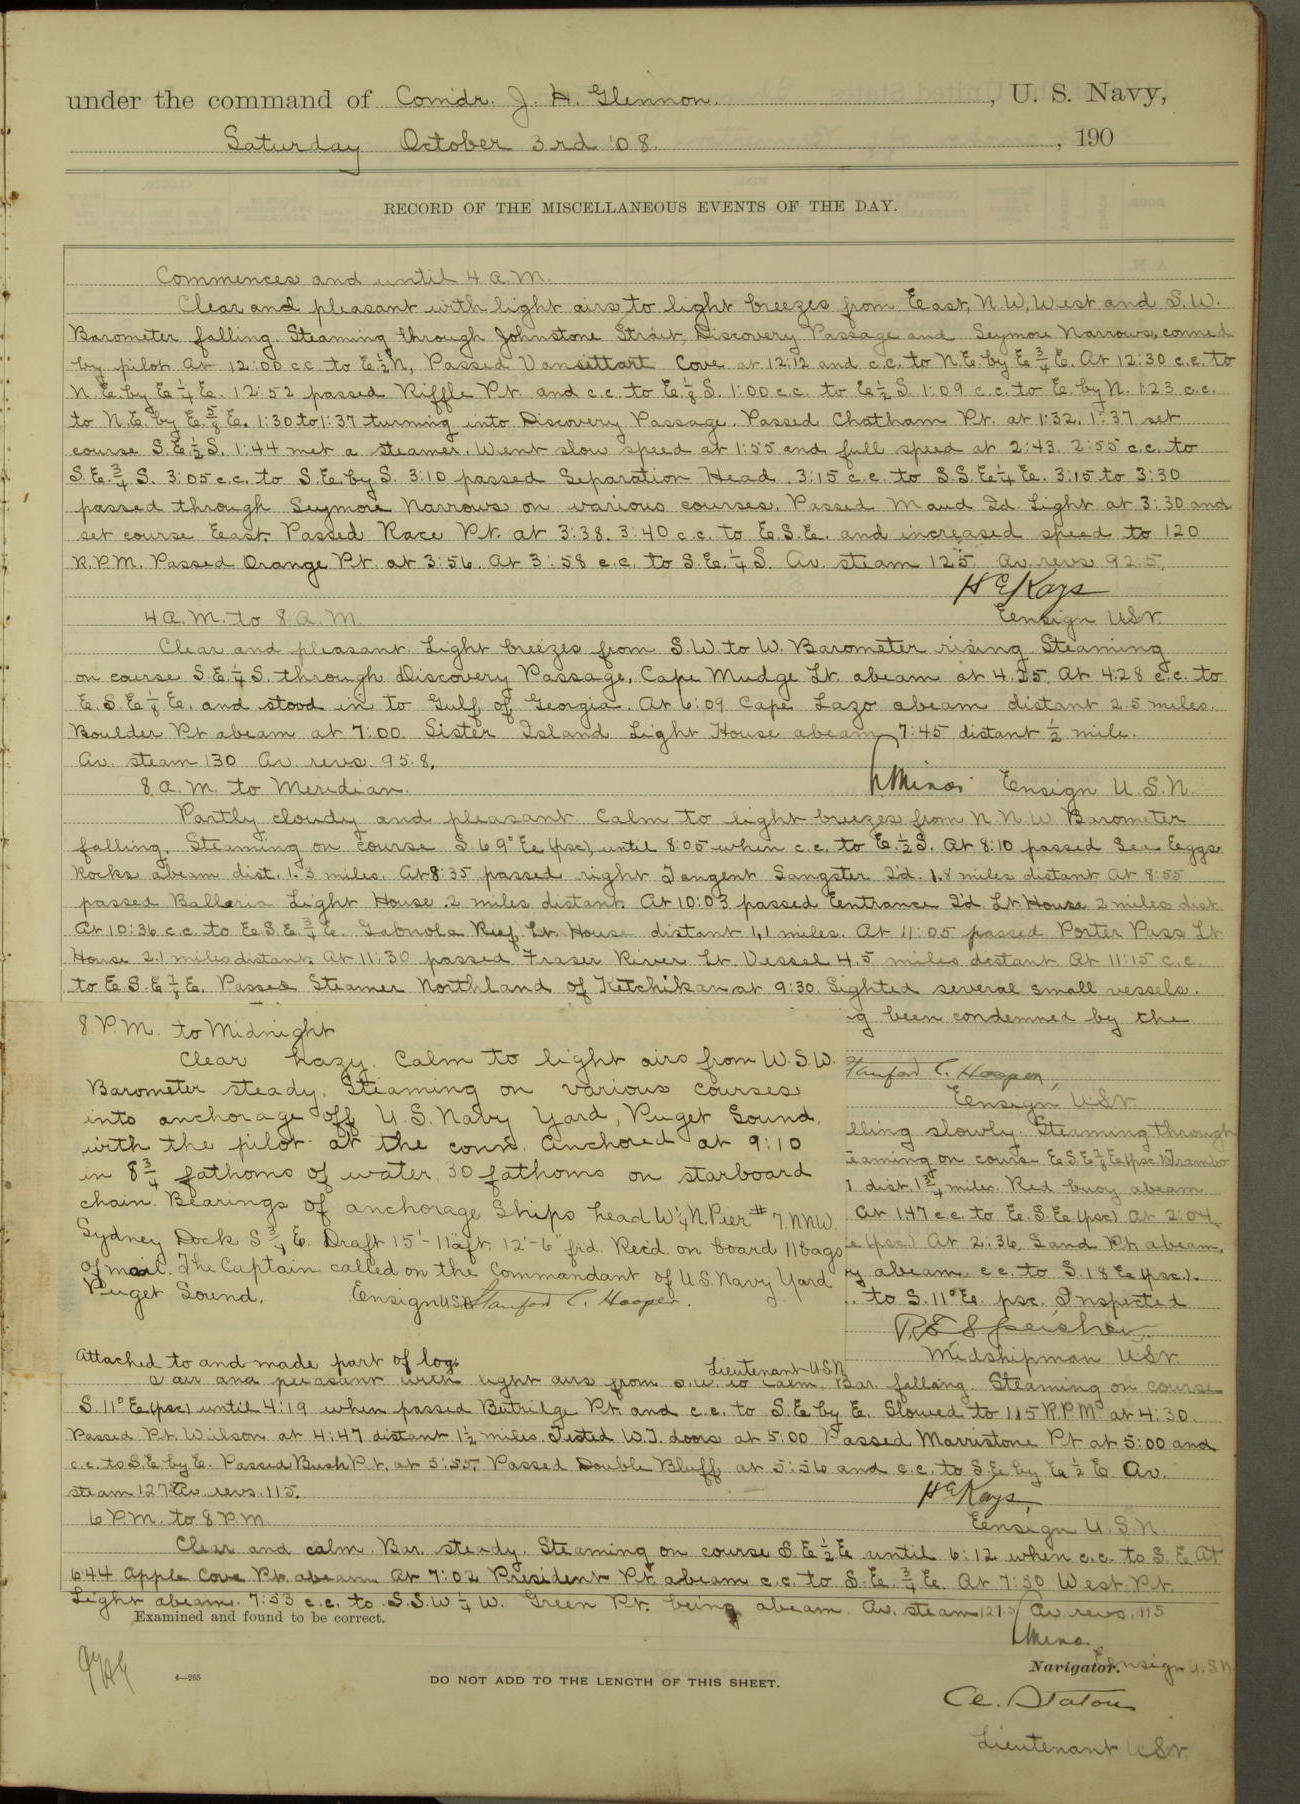 under the command of Comdr. J. H. Glennon. , U. S. Navy,
Saturday October 3rd '08. , 190
RECORD OF THE MISCELLANEOUS EVENTS OF THE DAY.
Commences and until 4 A.M.
Clear and pleasant with light airs to light breezes from East, N.W, West and S.W.
Barometer falling. Steaming through Johnstone Strait, Discovery Passage and Seymore Narrows, conned
by pilot. At 12:00 c.c. to E½N, Passed Vansittart Cove at 12:12 and c.c. to N.E. by E ¾ E. At 12:30 c.c. to
N.E. by E ¼ E. 12:52 passed Riffle Pt. and c.c. to E ⅛ S. 1:00 c.c. to E½ S. 1:09 c.c. to E. by N. 1:23 c.c.
to N.E. by E. ⅝ E. 1:30 to 1:37 turning into Discovery Passage. Passed Chatham Pt. at 1:32. 1:37 set
course S.E ½ S. 1:44 met a steamer. Went slow speed at 1:55 and full speed at 2:43. 2:55 c.c. to
S.E. ¾ S. 3:05 c.c. to S.E. by S. 3:10 passed Separation Head. 3:15 c.c. to S.S.E ¼ E. 3:15 to 3:30
passed through Seymore Narrows on various courses. Passed Maud Id. Light at 3:30 and
set course East. Passed Race Pt. at 3:38. 3:40 c.c. to E.S.E. and increased speed to 120
R.P.M. Passed Orange Pt. at 3:56. At 3:58 c.c. to S.E. ¼ S. Av. steam 125 Av. revs 92.5.
H E Kays
4 A.M. to 8 A.M. Ensign USN.
Clear and pleasant. Light breezes from S.W. to W. Barometer rising. Steaming
on course S.E ¼ S. through Discovery Passage, Cape Mudge Lt. abeam at 4.25. At 4:28 c.c. to
E.S.E ⅛ E. and stood in to Gulf of Georgia. At 6:09 Cape Lazo abeam distant 2.5 miles.
Boulder Pt abeam at 7:00. Sister Island Light House abeam 7:45 distant ½ mile.
Av. steam 130 Av. revs. 95.8.
8 A.M. to Meridian. Ensign U.S.N.
Partly cloudy and pleasant. Calm to light breezes from N.N.W. Barometer
falling. Steaming on course S. 69° E (psc), until 8:05 when c.c. to E. ½ S. At 8:10 passed Sea Eggs
Rocks abeam dist. 1.3 miles. At 8:35 passed right Tangent Sangster I'd. 1.8 miles distant. At 8:55
passed Balleria Light House .2 miles distant. At 10:03 passed Entrance I'd. Lt. House 2 miles dist.
At 10:36 c.c. to E.S.E. ¾ E. Gabriola Reef Lt. House distant 1.1 miles. At 11:05 passed Porter Pass Lt
House 2.1 miles distant. At 11:30 passed Fraser River Lt. Vessel 4.5 miles distant. At 11:15 c.c.
to E.S.E ⅞ E. Passed Steamer Northland of Ketchikan at 9:30. Sighted several small vessels.
g been condemned by the
8 P.M. to Midnight
Clear hazy. Calm to light airs from W.S.W.
Barometer steady. Steaming on various courses
into anchorage off U.S. Navy Yard, Puget Sound,
with the pilot at the conn. Anchored at 9:10
in 8¾ fathoms of water, 30 fathoms on starboard
chain. Bearings of anchorage Ships head W¼N. Pier #7. NNW.
Sydney Dock S ¾ E. Draft 15'-11" aft. 12'-6" f'd. Rec'd. on board 11 bags
of mail. The Captain called on the Commandant of U.S. Navy Yard
Puget Sound. Ensign U.S.N. Stanford C. Hooper.
Stanford C. Hooper,
Ensign USN.
lling slowly. Steaming through
eaming on course E.S.E ⅞ E (psc)
dist. 1¾ miles. Red buoy abeam
At 1.47 c.c. to E.S.E (psc) At 2:04
(psc) At 2:36, Sand Pt. abeam,
y abeam, c.c. to S. 18 E (psc).
to S. 11° E. psc. Inspected
Midshipman USN.
Attached to and made part of log. Lieutenant USN
air and pleasant with light airs from S.W. to Calm. Bar. falling. Steaming on course
S. 11° E (psc) until 4:19 when passed Butrilge Pt. and c.c. to S.E by E. Slowed to 115 R.P.M. at 4:30.
Passed Pt. Wilson at 4:47 distant 1½ miles. Tested W.T. doors at 5:00 Passed Marristone Pt at 5:00 and
c.c. to S.E by E. Passed Bush Pt. at 5:55. Passed Double Bluff at 5:56 and c.c. to S.E by E ½ E. Av.
steam 127 Av. revs. 115.
H E Kays,
6 P.M. to 8 P.M. Ensign U.S.N.
Clear and calm. Bar. steady. Steaming on course S.E ½ E until 6:12 when c.c. to S.E. At
644 Apple Cove Pt. abeam. At 7:02 President Pt. abeam c.c. to S.E. ¾ E. At 7:50 West Pt.
Light abeam. 7:53 c.c. to S.S.W ¼ W. Green Pt. being abeam. Av. steam 127.5 Av. revs. 115
Examined and found to be correct.
Navigator. Ensign U.S.N
4—265
DO NOT ADD TO THE LENGTH OF THIS SHEET.
Lieutenant USN.